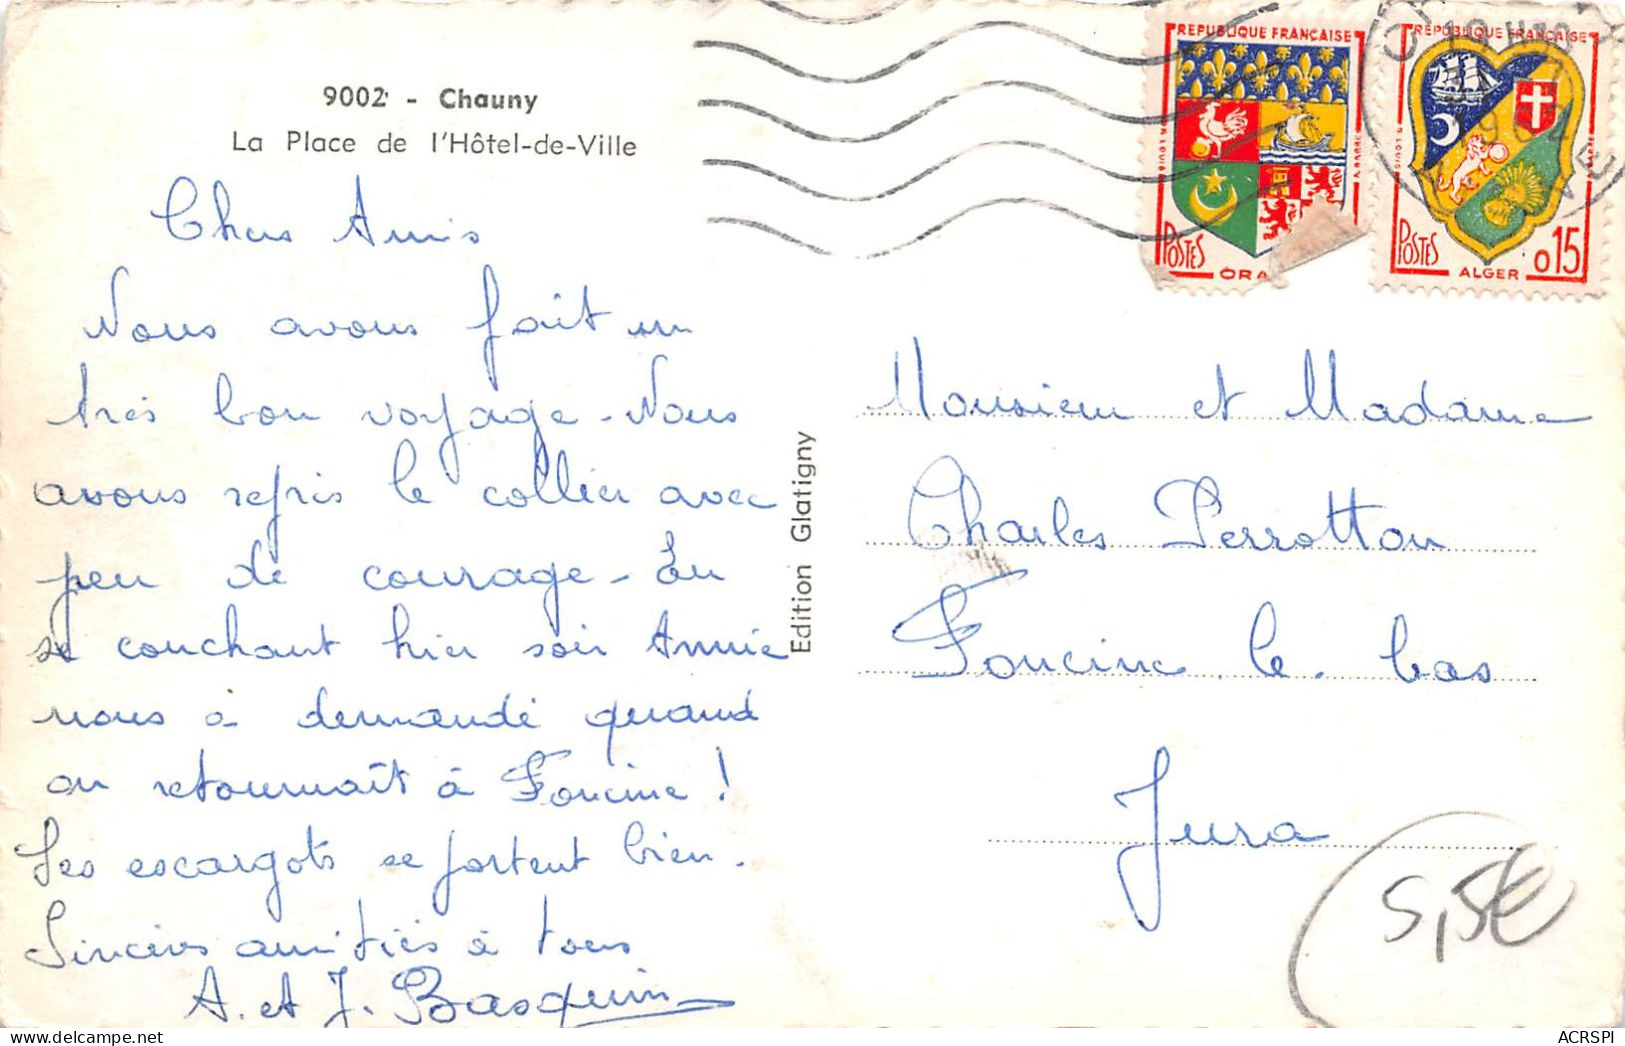 9002 - Chauny
La Place de l'Hôtel-de-Ville
Chers Amis
Nous avons fait un
très bon voyage - Nous
avons repris le collier avec
peu de courage - En
se couchant hier soir Annie
nous a demandé quand
on retournait à Foncine !
Les escargots se portent bien.
Sincères amitiés à tous
A. et J. Basquin
Edition Glatigny
REPUBLIQUE FRANÇAISE
POSTES
ORA
REPUBLIQUE FRANÇAISE
POSTES
ALGER
0 15
Monsieur et Madame
Charles Perrotton
Foncine. le. bas
Jura
5,5€
ACRSPI